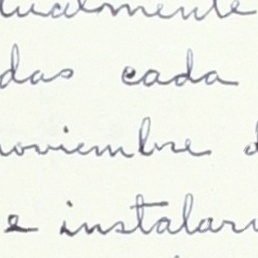 tualmente
das cada
noviembre d
e instalar